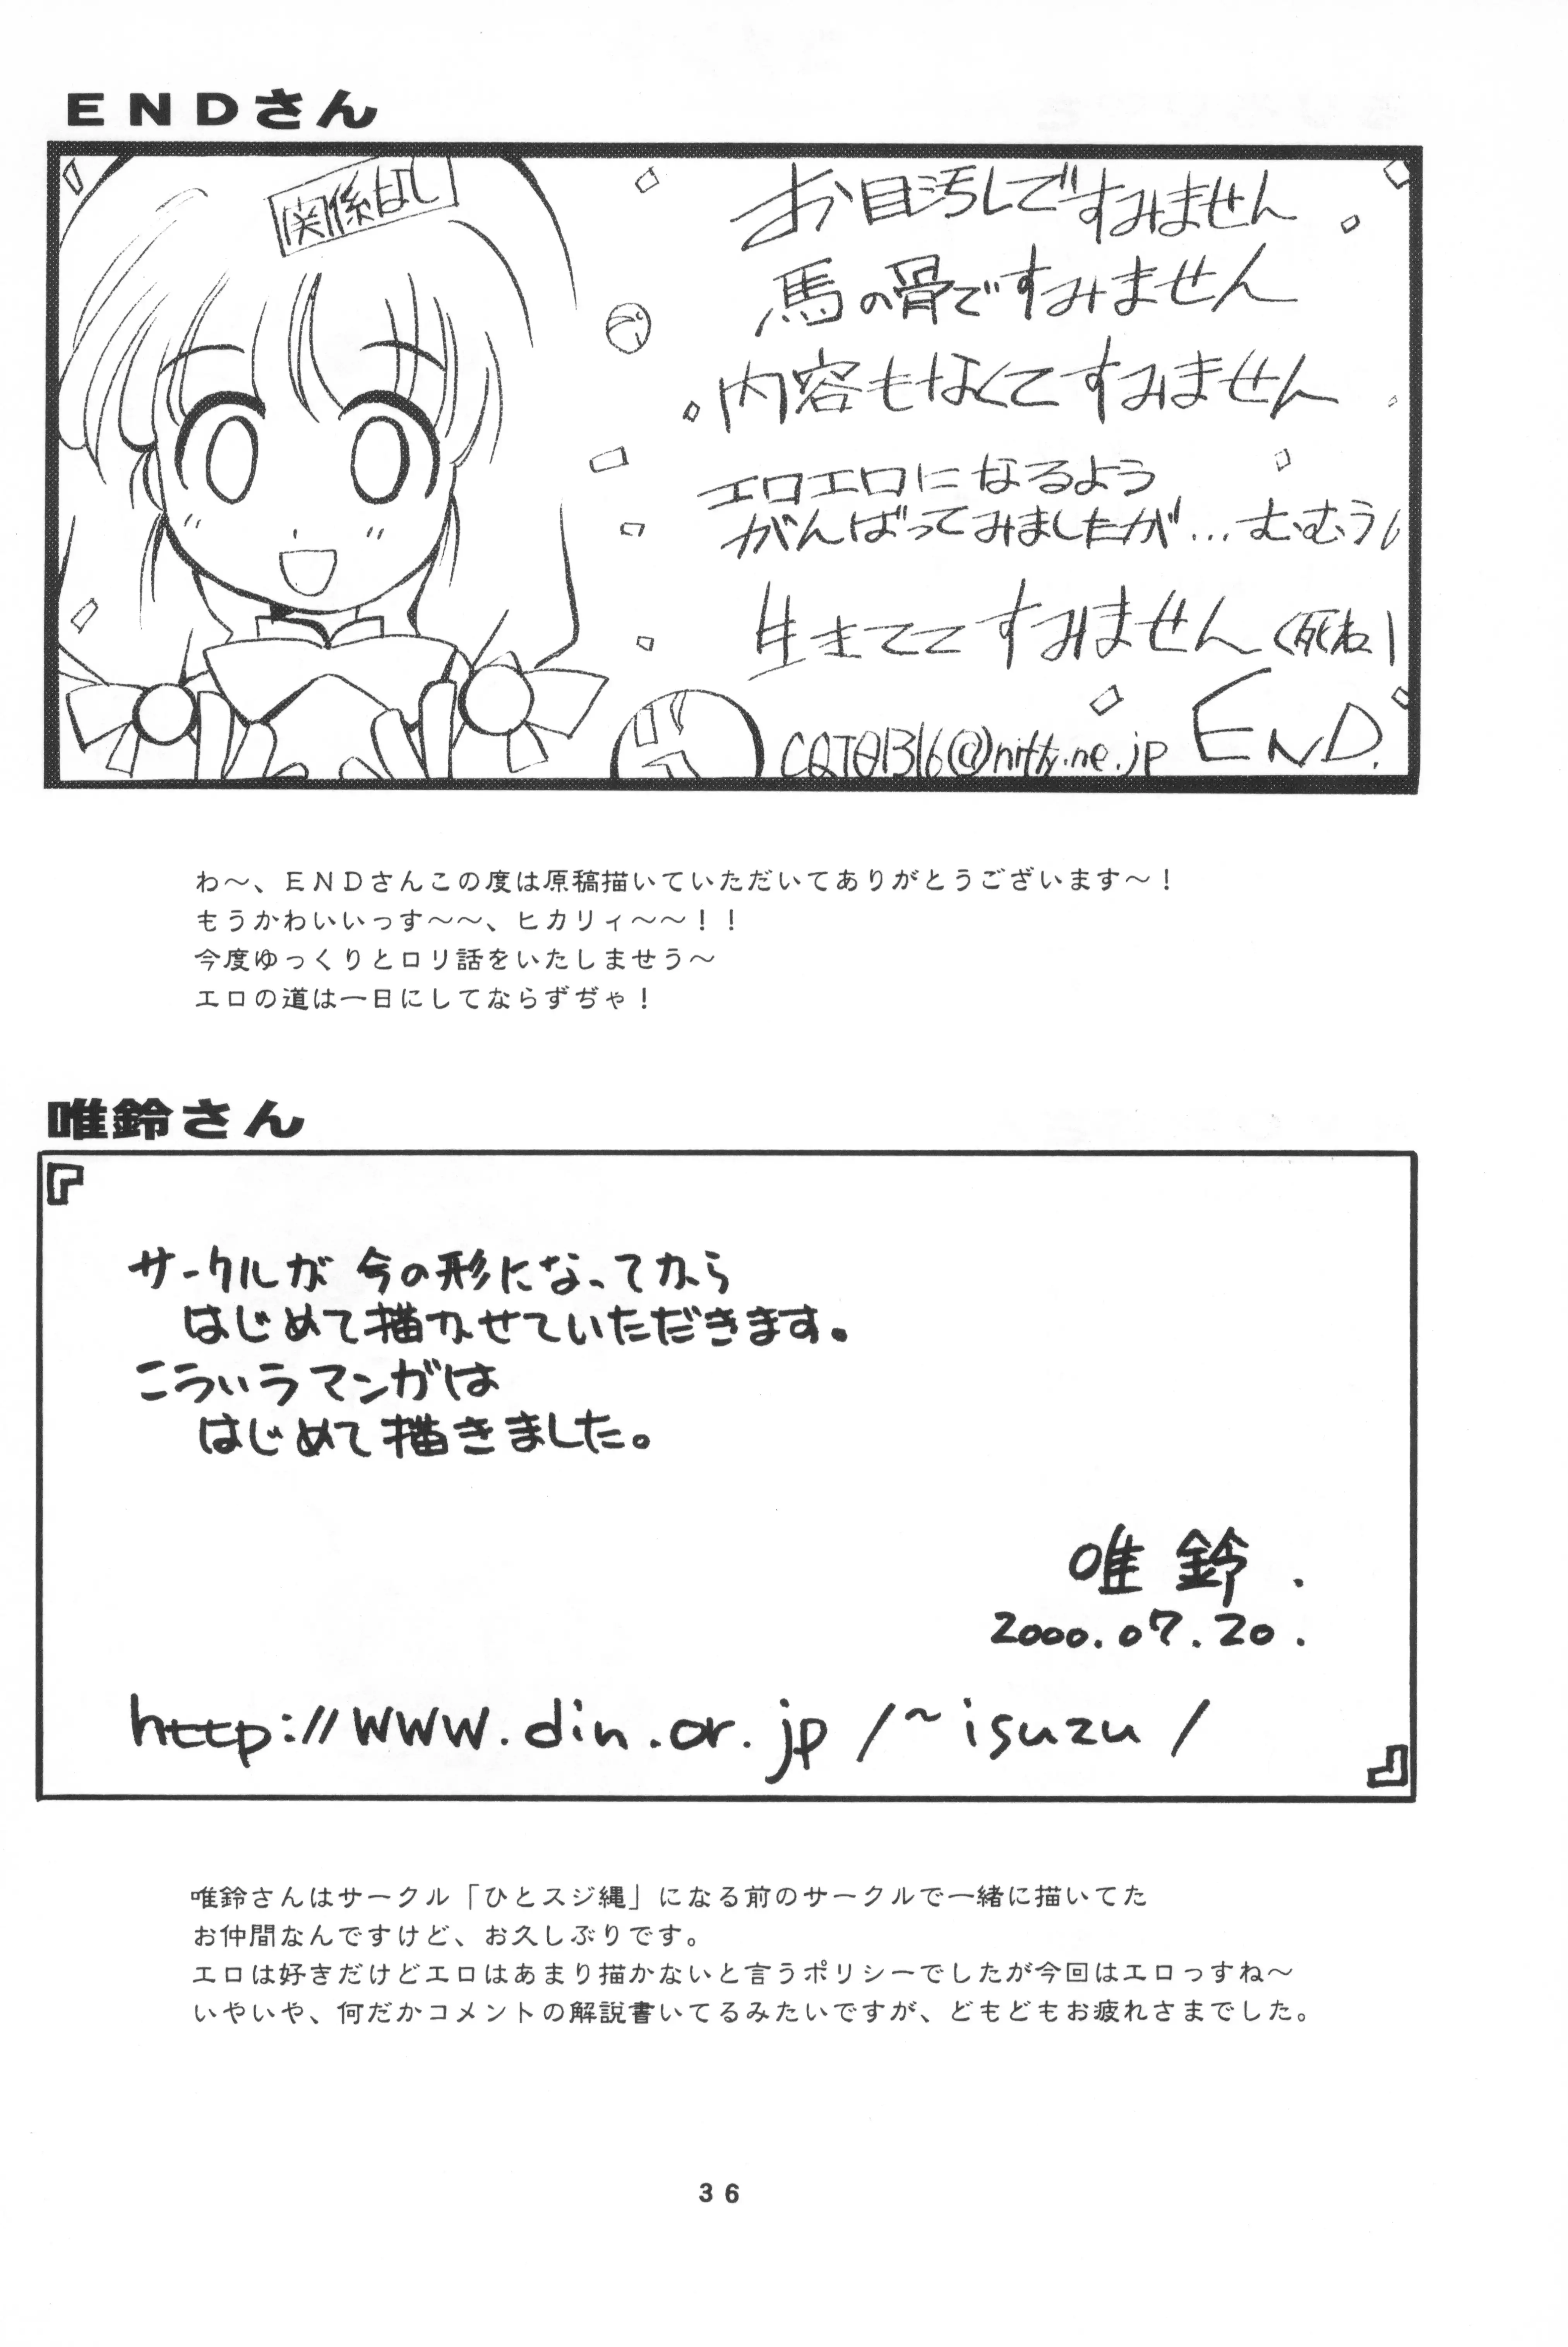 ENDさん
関係なし
お目汚しですみません
馬の骨ですみません
内容もなくてすみません
エロエロになるよう
がんばってみましたが…むむぅ
生きててすみません(死ね)
CQT01316@nifty.ne.jp END.
わ～、ENDさんこの度は原稿描いていただいてありがとうございます～！
もうかわいいっす～～、ヒカリィ～～！！
今度ゆっくりとロリ話をいたしませう～
エロの道は一日にしてならずぢゃ！
唯鈴さん
『
サークルが今の形になってから
はじめて描かせていただきます。
こういうマンガは
はじめて描きました。
唯鈴.
2000.07.20.
http://www.din.or.jp/~isuzu/
』
唯鈴さんはサークル「ひとスジ縄」になる前のサークルで一緒に描いてた
お仲間なんですけど、お久しぶりです。
エロは好きだけどエロはあまり描かないと言うポリシーでしたが今回はエロっすね～
いやいや、何だかコメントの解説書いてるみたいですが、どもどもお疲れさまでした。
36